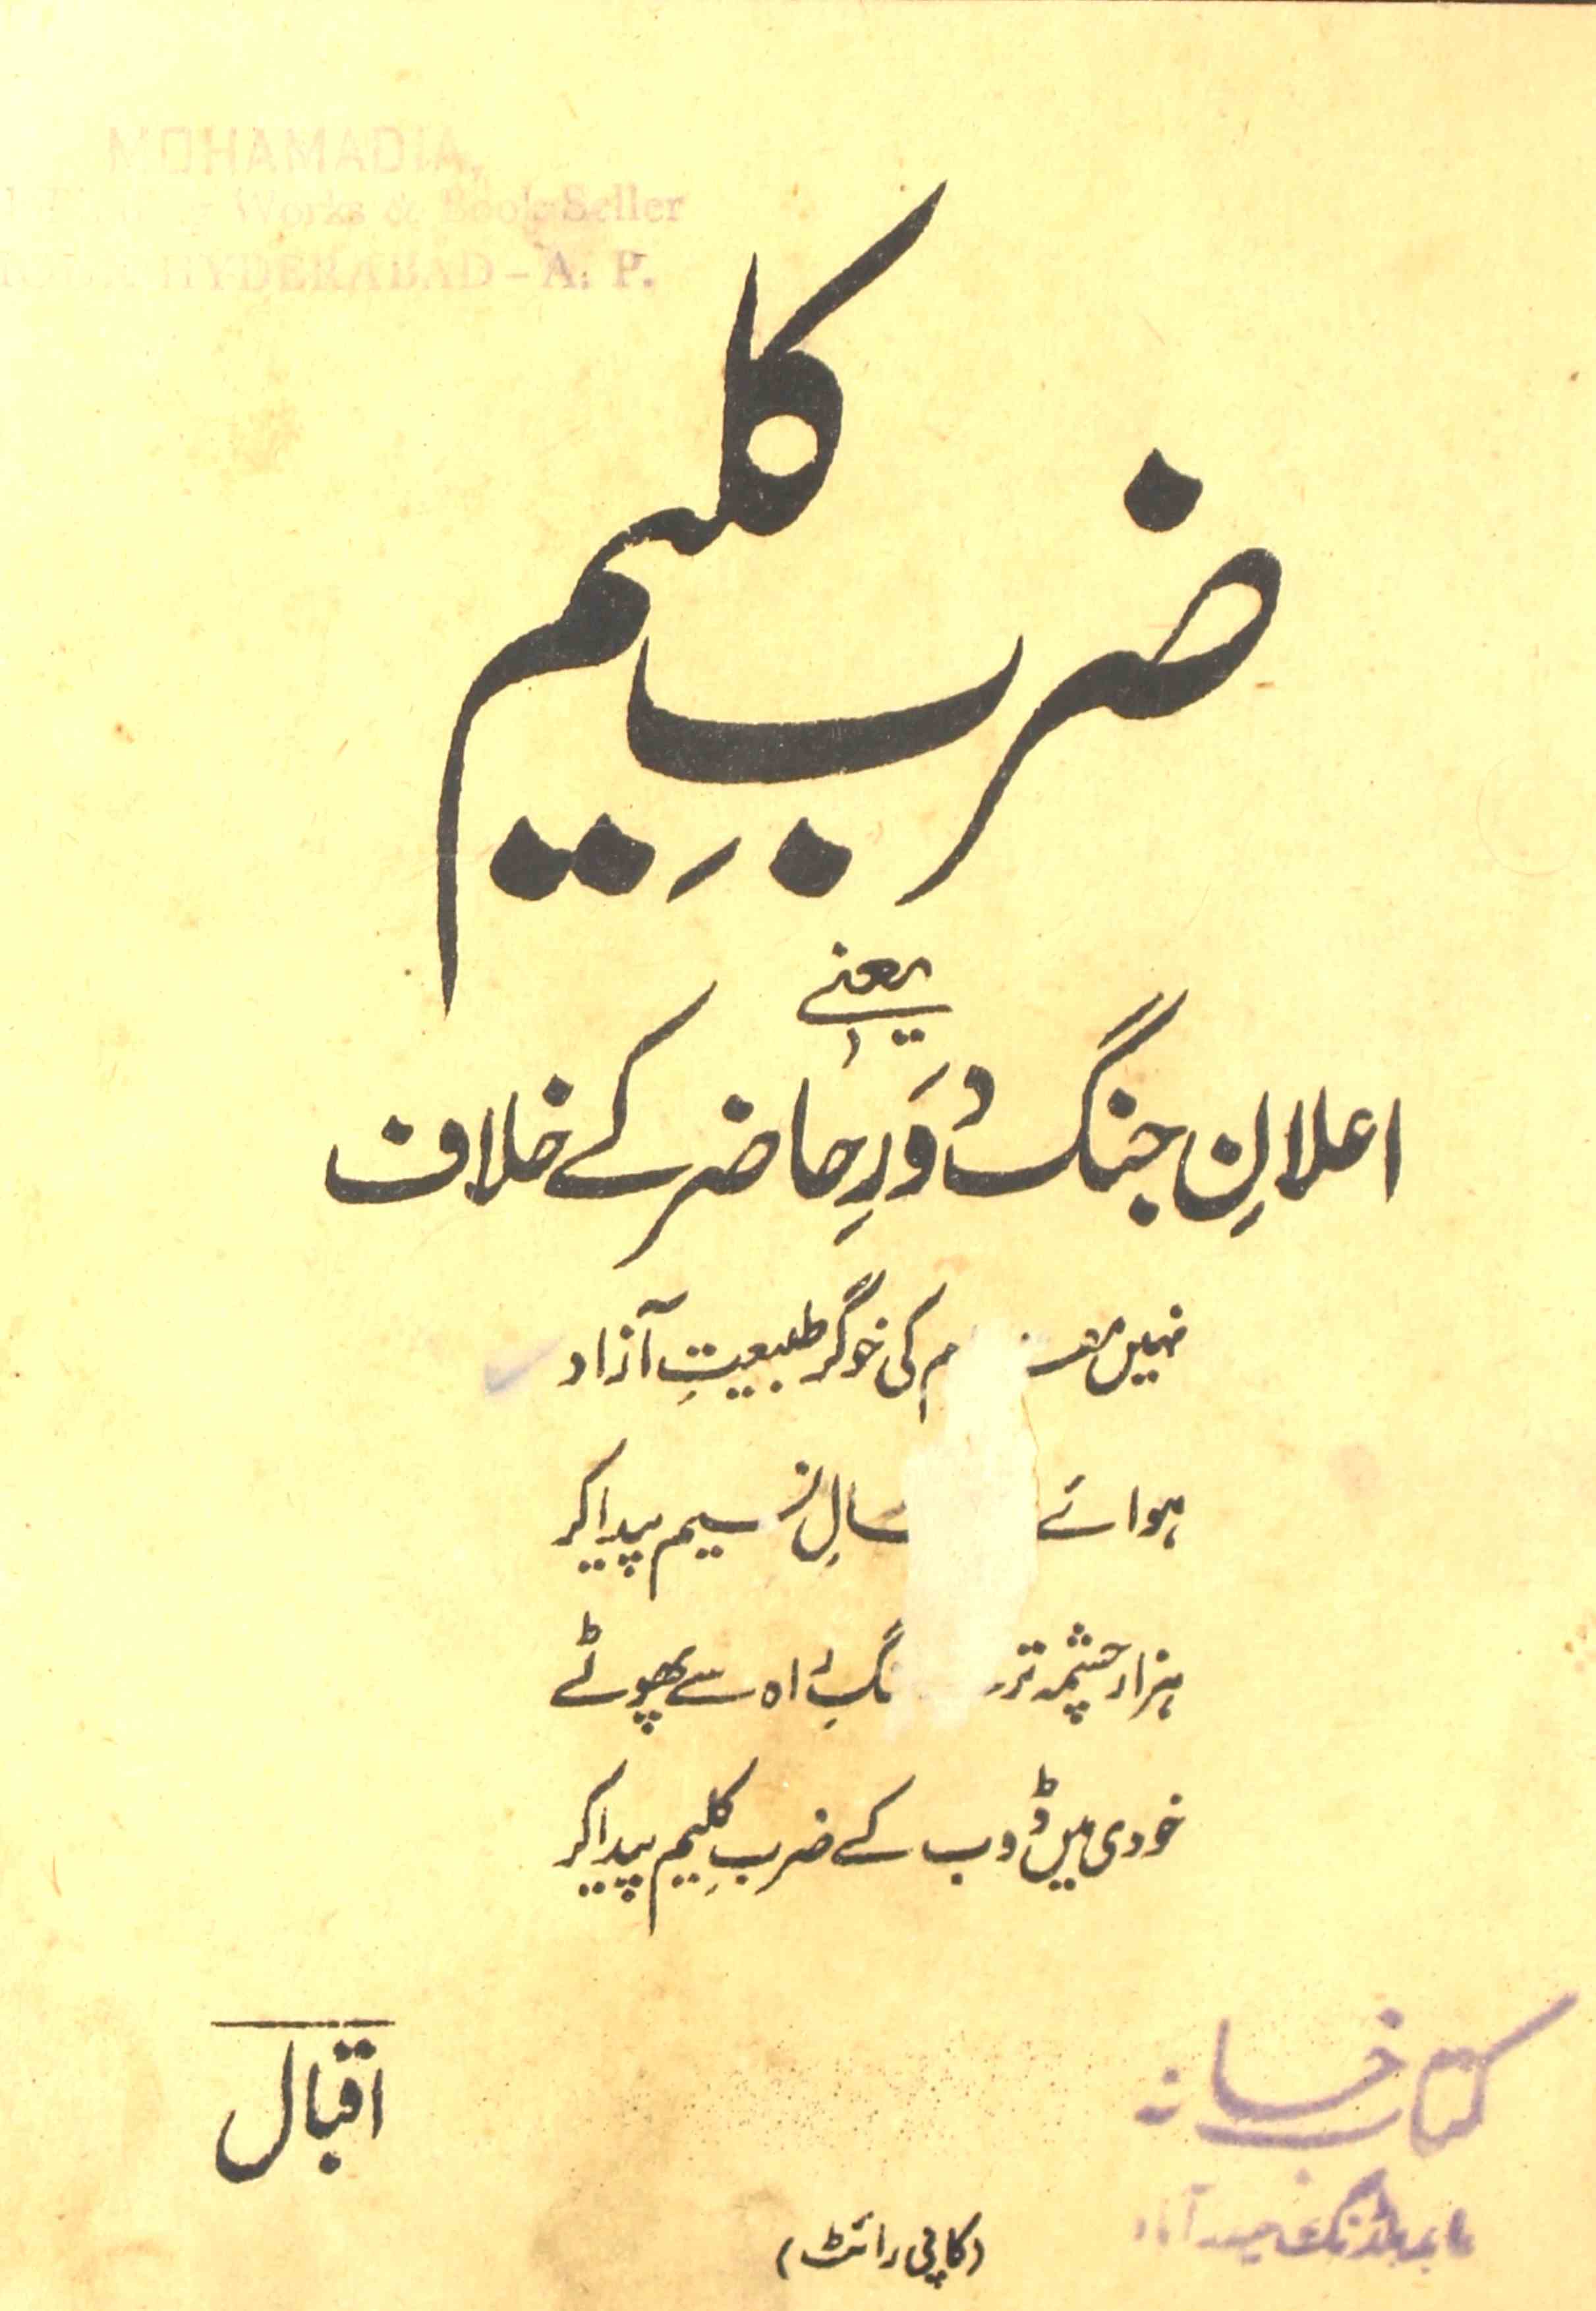 MOHAMADIA,
Works & Book Seller
HYDERABAD - A. P.
ضربِ کلیم
یعنے
اعلانِ جنگ دَورِ حاضر کے خلاف
نہیں کی خوگر طبیعتِ آزاد
ہوائے نسیم پیدا کر
ہزار چشمہ ترے راہ سے پھوٹے
خودی میں ڈوب کے ضربِ کلیم پیدا کر
اقبال
کتاب خانہ
حیدرآباد
(کاپی رائٹ)